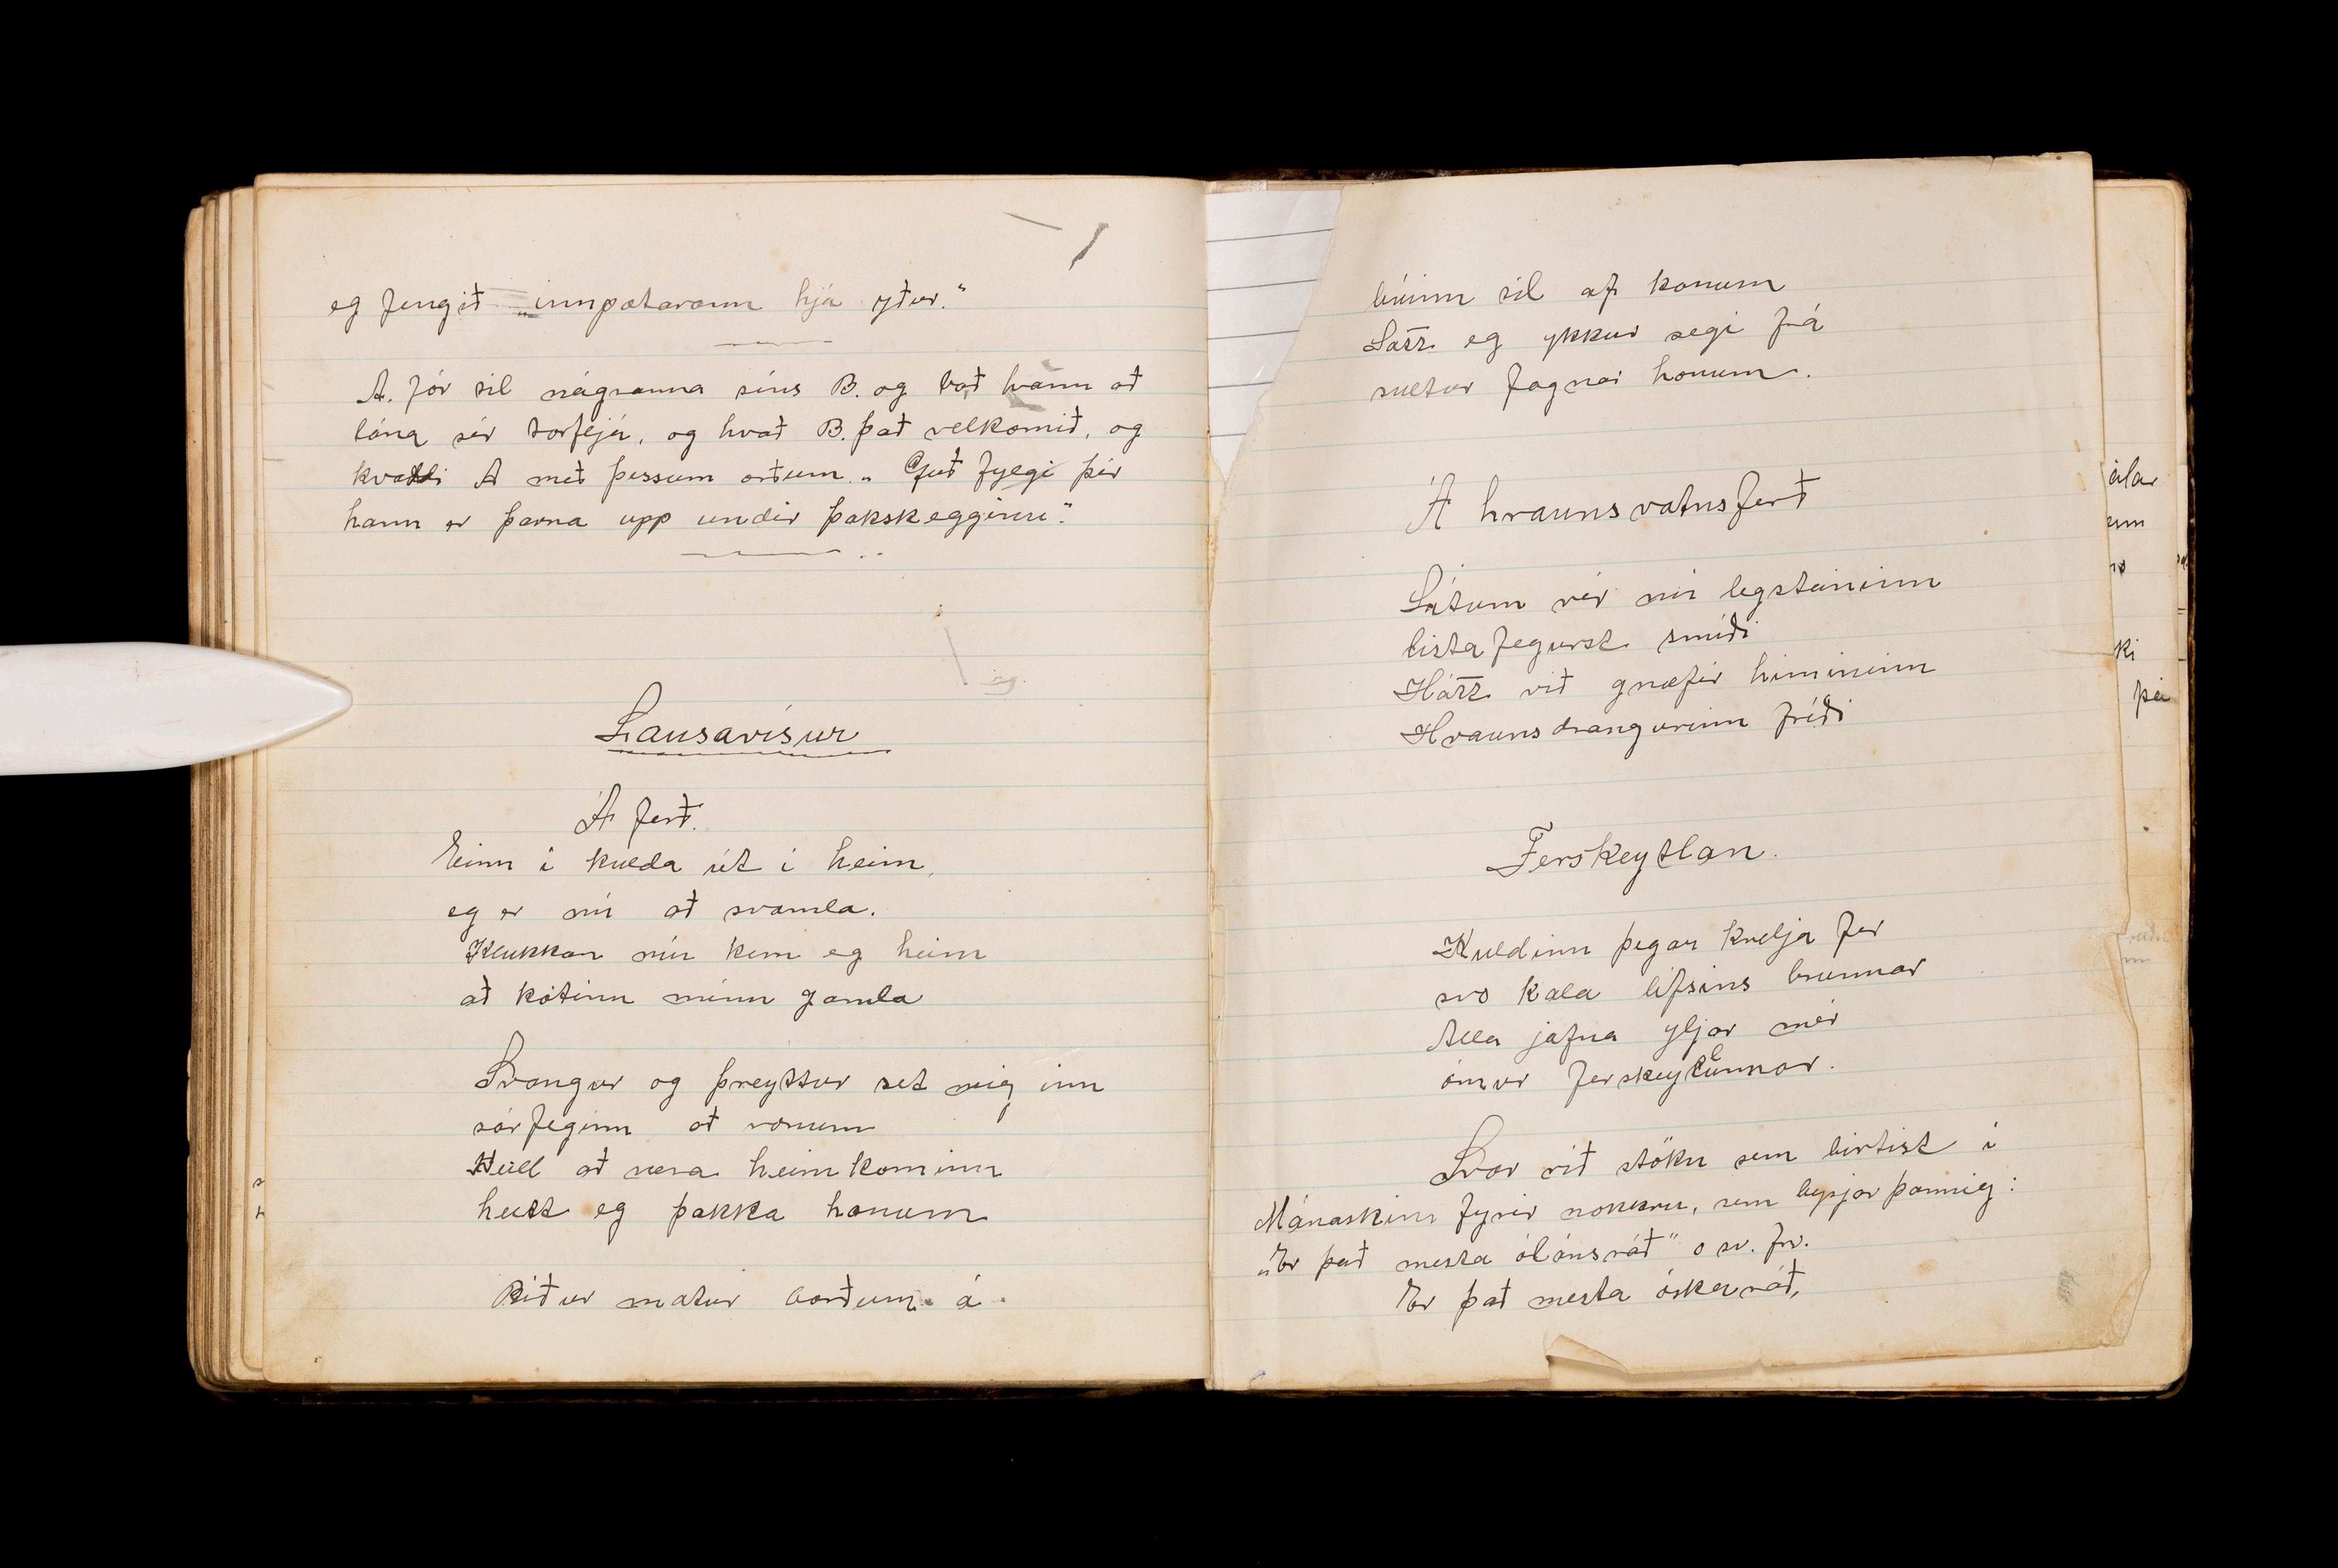 eg fengið „innpatarann hjá yður.“
A. fór til nágranna síns B. og bað hann að
lána sér torfljá, og hvað B. það velkomið, og
kvaddi A með þessum orðum. „ Guð fylgi þér
hann er þarna upp undir þakskegginu“.
Lausavísur
Á ferð.
Einn í kulda út í heim,
eg er nú að svamla.
Klukkan níu kem eg heim
að kotinu mínu gamla
Svangur og þreyttur set mig inn
sárfeginn að vonum
Heill að vera heimkominn
heitt eg þakka honum
Bíður matur borðum á
búinn til af konum
Satt eg ykkur segi frá
sultur fagnar honum.
Á hraunsvatnsferð
Lítum vér nú legsteininn
listafegurst smíði
Hátt við gnæfir himininn
Hraunsdrangurinn fríði
Ferskeytlan.
Kuldinn þegar kvelja fer
svo kala lífsins brunnar
Alla jafna yljar mér
ómur ferskeytlunnar.
Svar við stöku sem birtist í
Mánaskini fyrir nokkru, sem byrjar þannig:
„Er það mesta ólánsráð“ o sv. frv.
Er það mesta óskaráð,
álar
um
ki
þei